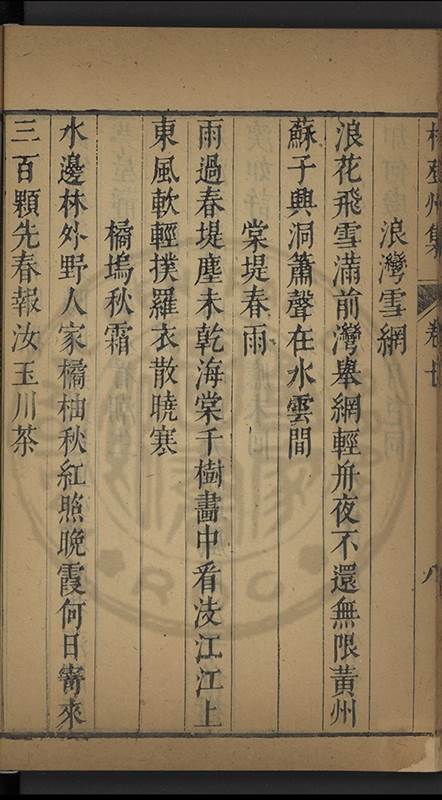 浪灣雪網
浪花飛雪滿前灣舉網輕舟夜不還無限黃州
蘇子興洞簫聲在水雲間
棠堤春雨
雨過春堤塵未乾海棠千樹畵中看汝江江上
東風軟輕撲羅衣散曉寒
橘塢秋霜
水邊林外野人家橘柚秋紅照晚霞何日寄來
三百顆先春報汝玉川茶